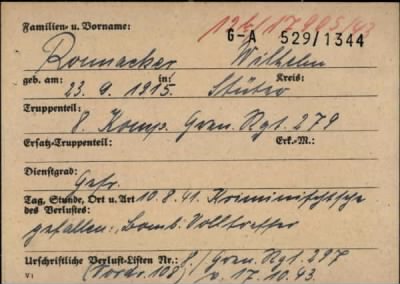 Familien- u. Vorname: 12b/17995/43
G-A 529/1344
Ronnacker Wilhelm
geb. am: in: Kreis:
23. 9. 1915. Stüber
Truppenteil:
8. Komp. Gren. Rgt. 279
Ersatz-Truppenteil: Erk.-M.:
Dienstgrad:
Gefr.
Tag, Stunde, Ort u. Art 10.8.41.
des Verlustes:
gefallen: Bomb. Volltreffer
Urschriftliche Verlust-Listen Nr.: 8./Gren. Rgt. 297
V 1 (Vordr. 108) v. 17.10.43.